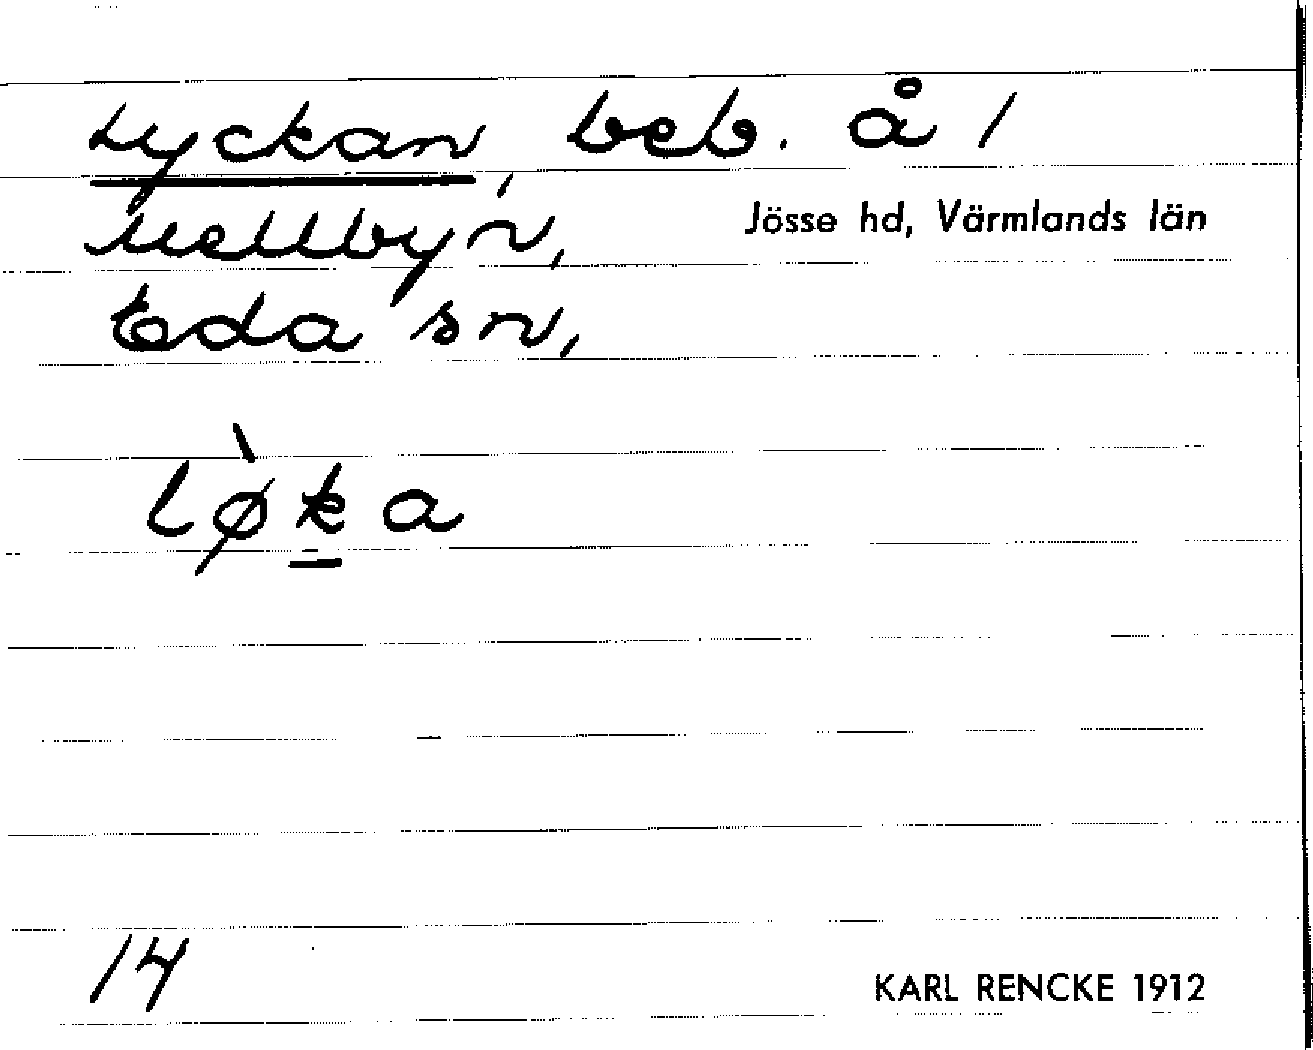 Lyckan, beb. å 1
Mellbyn,
Jösse hd, Värmlands län
Eda sn,
lø̀k̲a
14
KARL RENCKE 1912